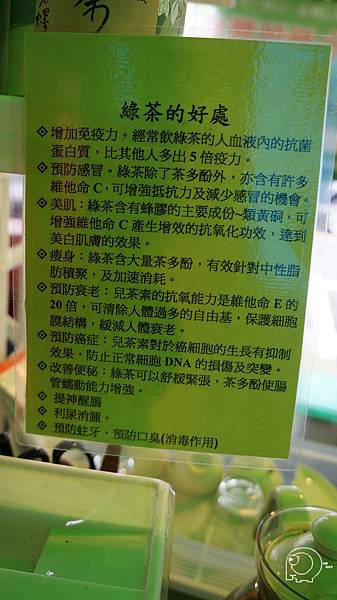 綠茶的好處
◈增加免疫力。經常飲綠茶的人血液內的抗菌
蛋白質，比其他人多出5倍疫力。
◈預防感冒。綠茶除了茶多酚外，亦含有許多
維他命C，可增強抵抗力及減少感冒的機會。
◈美肌：綠茶含有蜂膠的主要成份─類黃硐，可
增強維他命C產生增效的抗氧化功效，達到
美白肌膚的效果。
◈瘦身：綠茶含大量茶多酚，有效針對中性脂
肪積聚，及加速消耗。
◈預防衰老：兒茶素的抗氧能力是維他命E的
20倍，可清除人體過多的自由基，保護細胞
膜結構，緩減人體衰老。
◈預防癌症：兒茶素對於癌細胞的生長有抑制
效果，防止正常細胞DNA的損傷及突變。
◈改善便秘：綠茶可以舒緩緊張，茶多酚使腸
管蠕動能力增強。
◈ 提神醒腦
◈ 利尿消腫。
◈ 預防蛀牙、預防口臭(消毒作用)